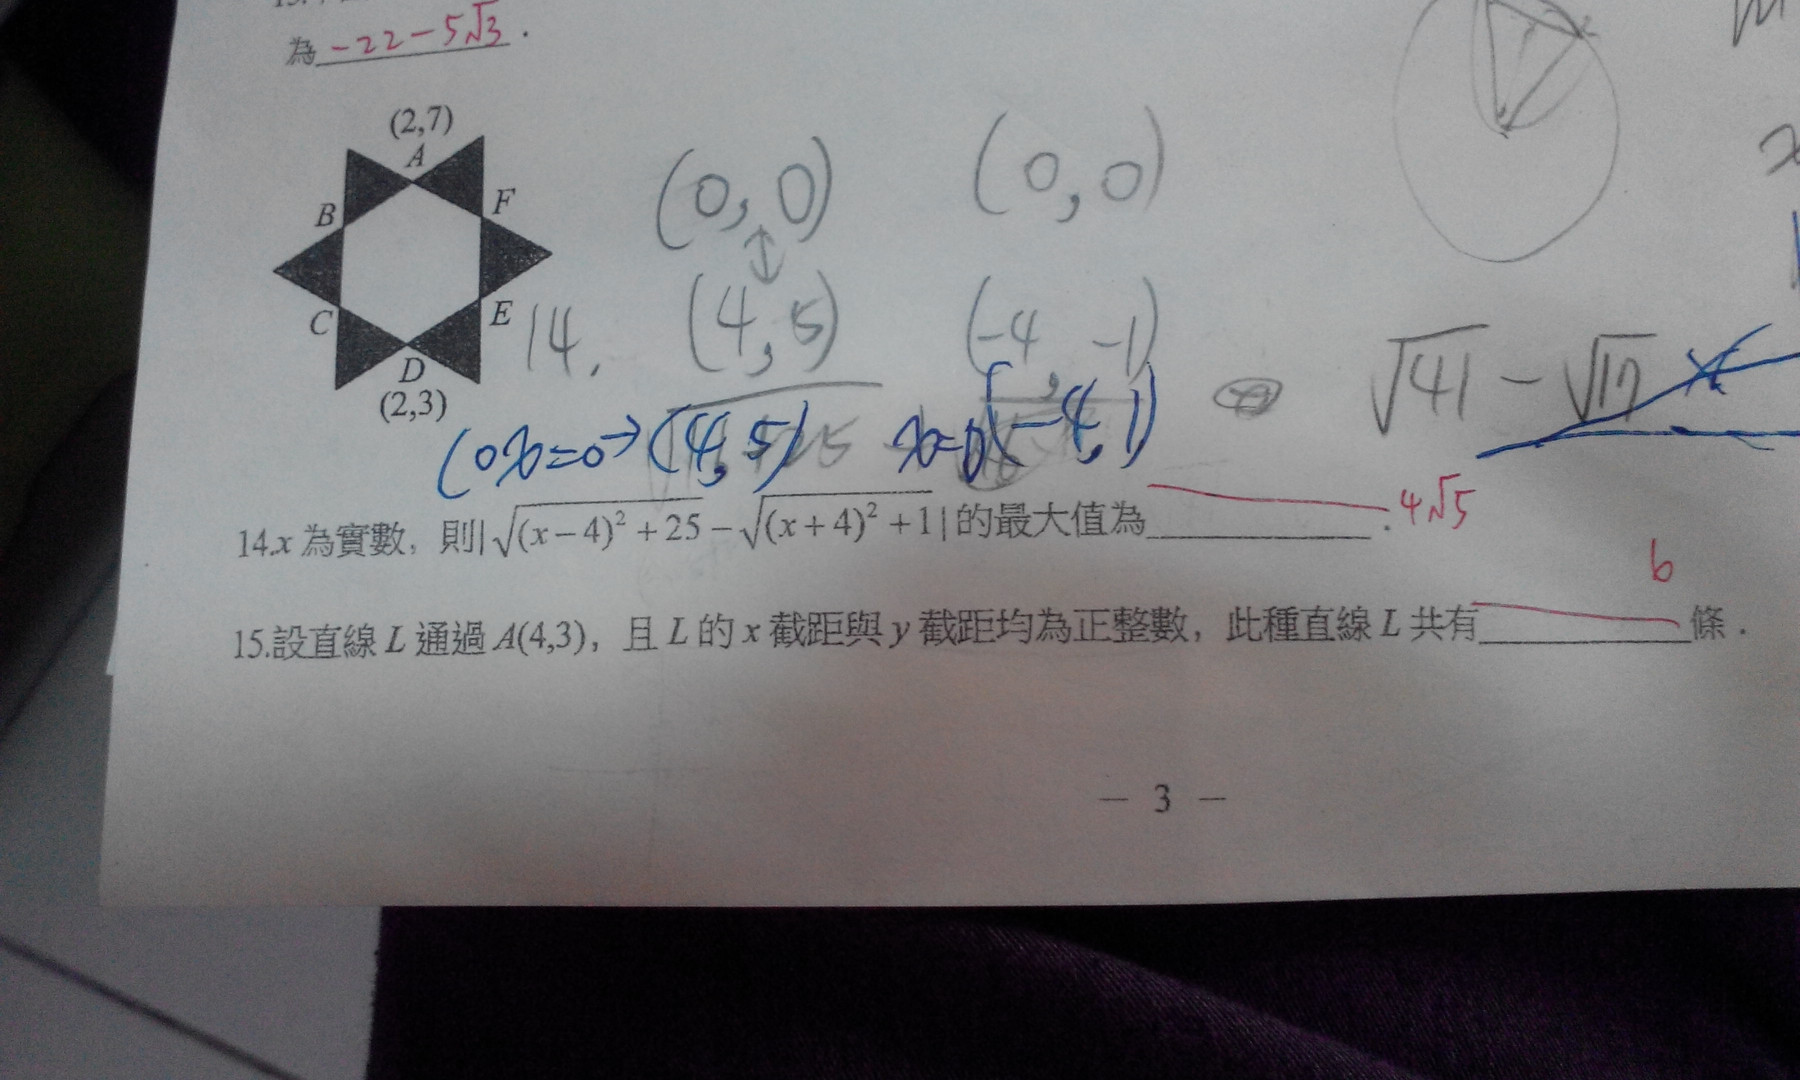 為 -22-5√3 .
(2,7)
A
B
F
C
E
D
(2,3)
(0,0)
(0,0)
14. (4,5) (-4,-1) √41 - √17
(0x=0→(4,5) x=0(-4,1)
14.x 為實數，則|√(x−4)²+25 − √(x+4)²+1|的最大值為____. 4√5
6
15.設直線 L 通過 A(4,3)，且 L 的 x 截距與 y 截距均為正整數，此種直線 L 共有____條．
— 3 —